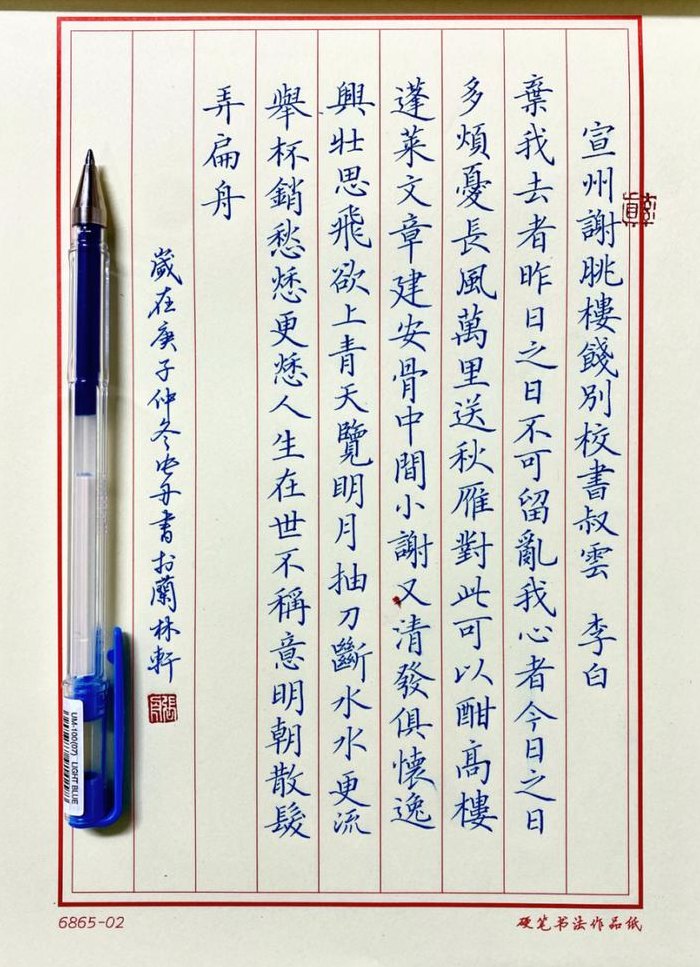 宣州謝眺樓餞別校書叔雲 李白
棄我去者昨日之日不可留亂我心者今日之日
多煩憂長風萬里送秋雁對此可以酣高樓
蓬萊文章建安骨中間小謝又清發俱懷逸
興壯思飛欲上青天覽明月抽刀斷水水更流
舉杯銷愁愁更愁人生在世不稱意明朝散髮
弄扁舟
歲在庚子仲冬丹書於蘭林軒
張丹
UM-100(07) LIGHT BLUE
6865-02
硬笔书法作品纸